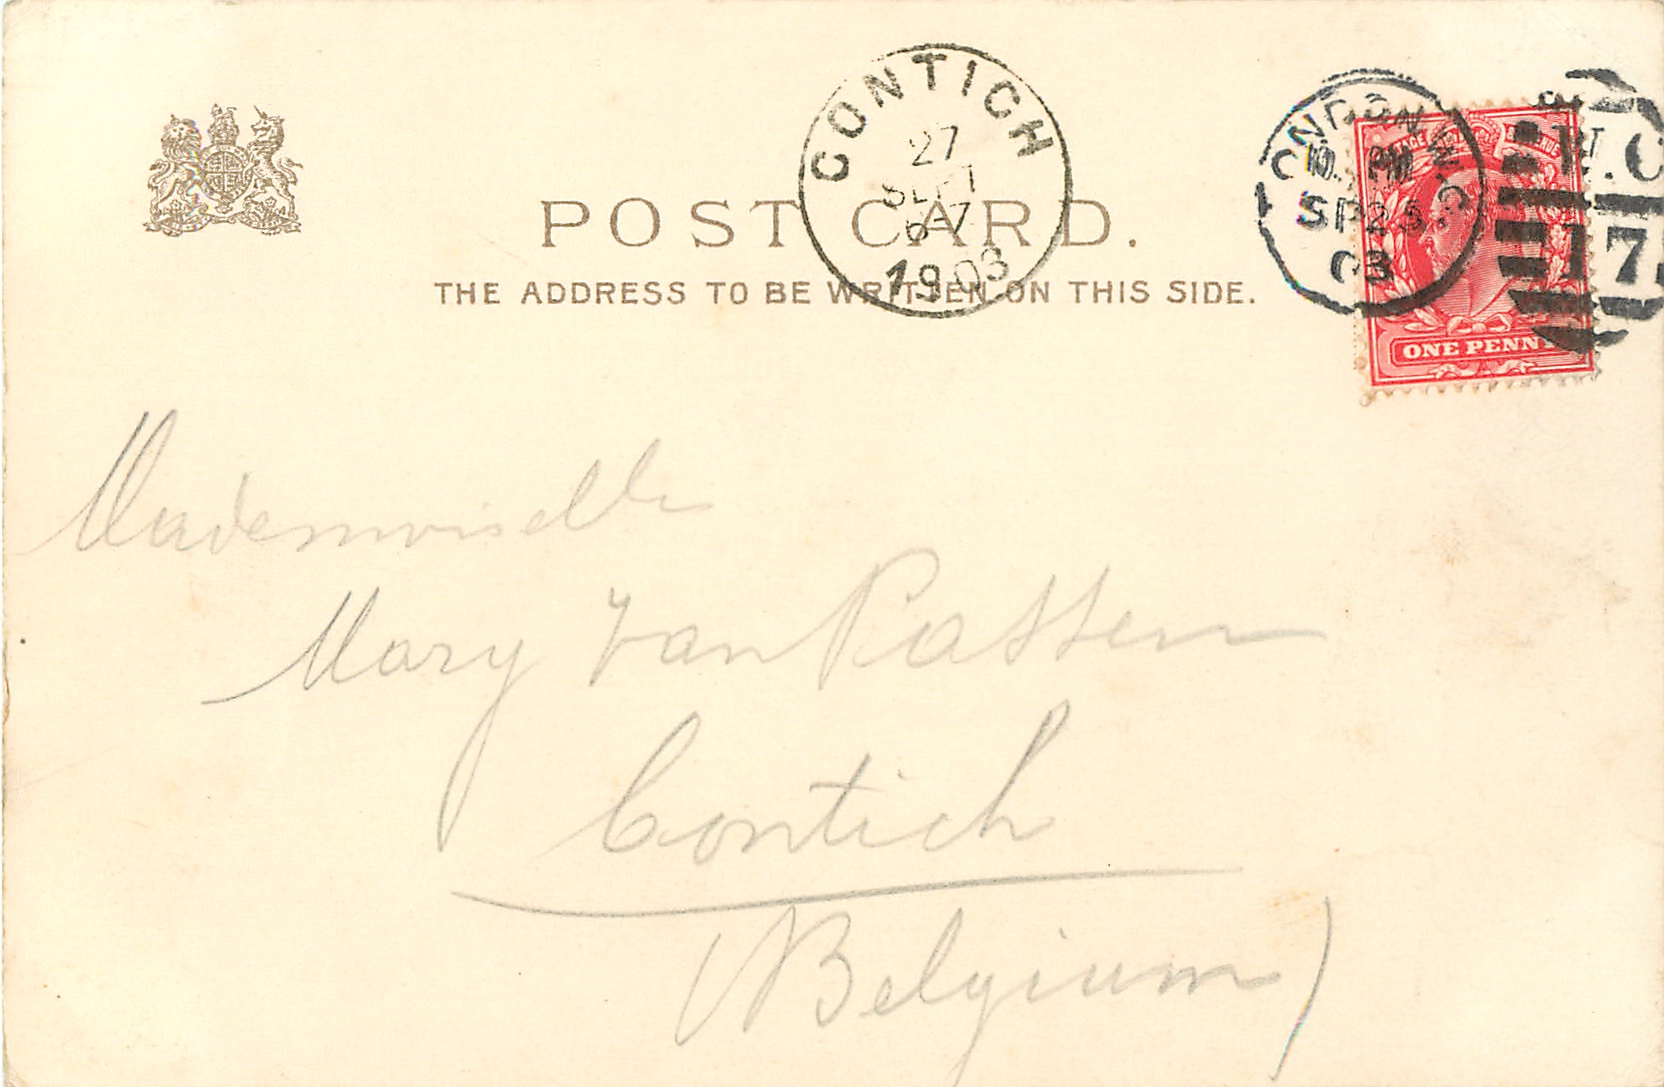 CONTICH
27
SEPT
6-7
1903
LONDON W.C.
10. PM
SP 25
03
W.C
17
ONE PENNY
POST CARD.
THE ADDRESS TO BE WRITTEN ON THIS SIDE.
Mademoiselle
Mary Van Passen
Contich
(Belgium)